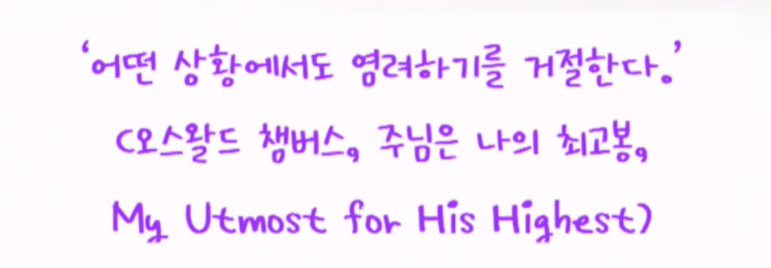 '어떤 상황에서도 염려하기를 거절한다.'
(오스왈드 챔버스, 주님은 나의 최고봉,
My Utmost for His Highest)